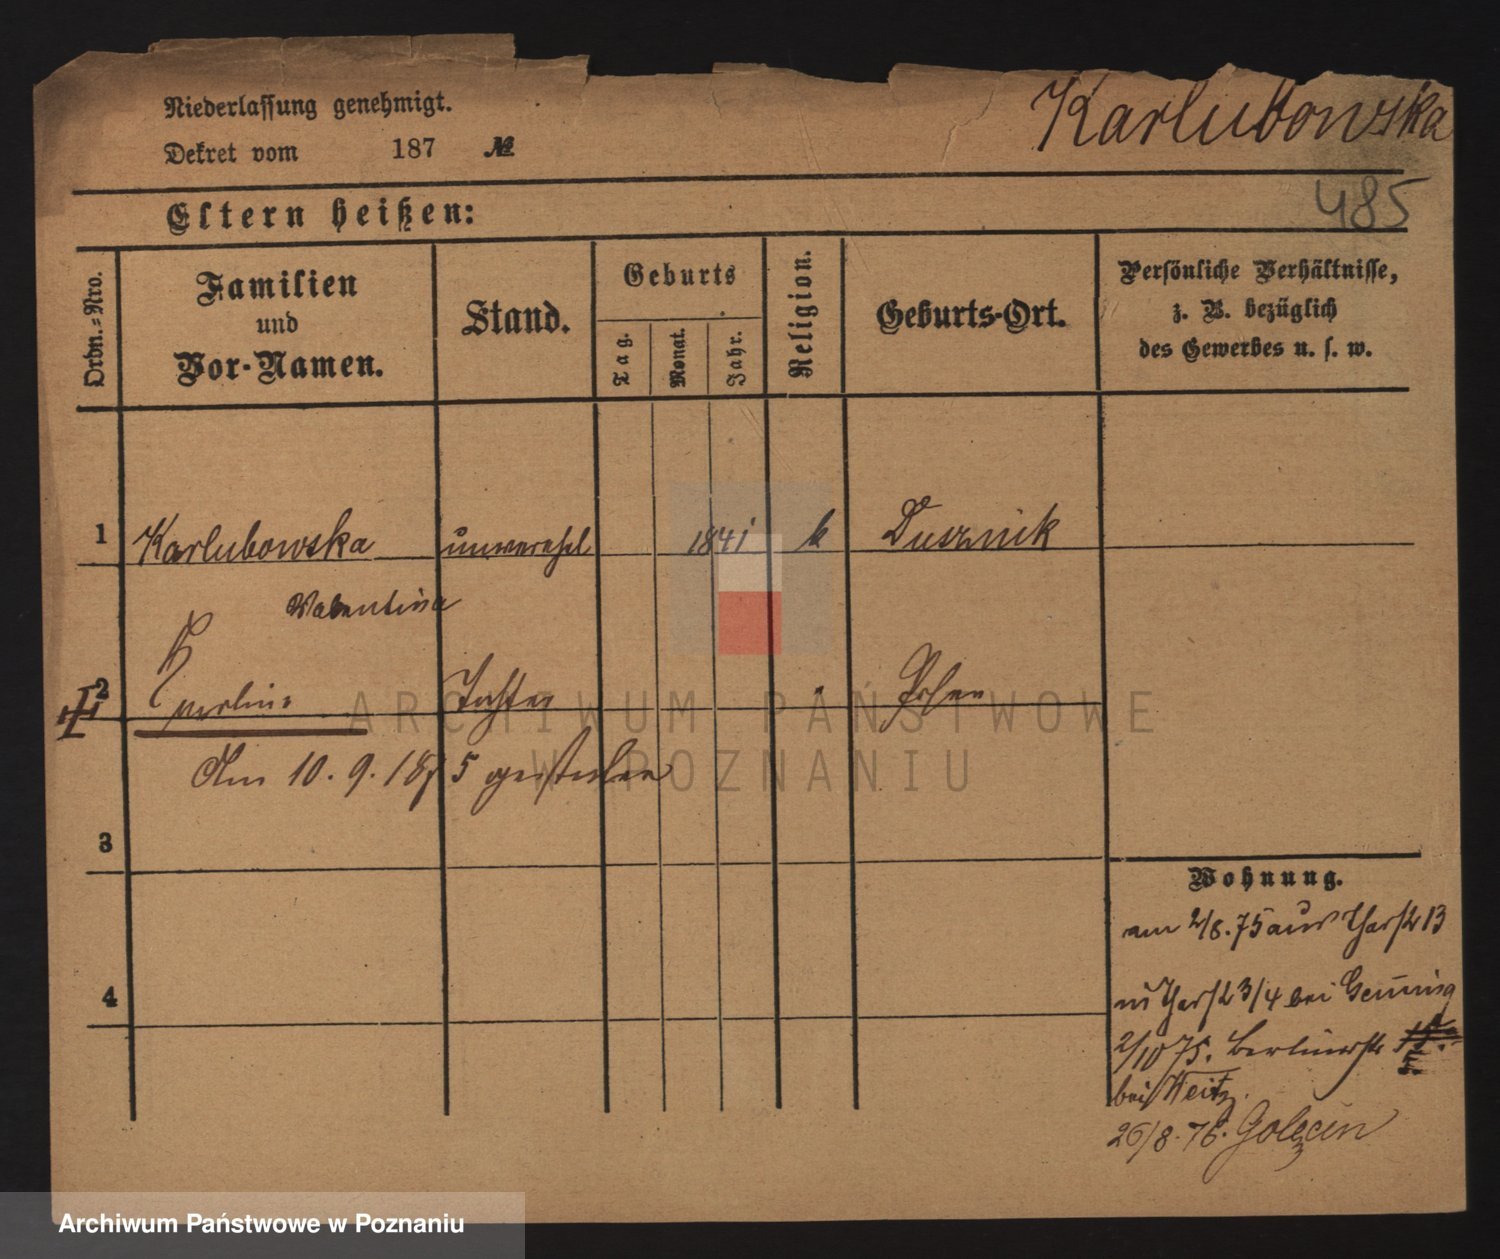 Niederlassung genehmigt.
Karlubowska
Dekret vom 187 №
485
Eltern heißen:
Ordn.-Nro.
Familien
und
Vor-Namen.
Stand.
Geburts
Tag.
Monat.
Jahr.
Religion.
Geburts-Ort.
Persönliche Verhältnisse,
z. B. bezüglich
des Gewerbes u. s. w.
1 Karlubowska unverehl 1841 k Dusznik
Valentina
2 Tochter Posen
Am 10. 9. 1875 gestorben
3
Wohnung.
am 2/8. 75 aus 13
4
3/4 bei
2/10 75. Berlinerstr
5.
bei Weitz.
26/8. 76. Golęcin
ARCHIWUM PAŃSTWOWE
W POZNANIU
Archiwum Państwowe w Poznaniu